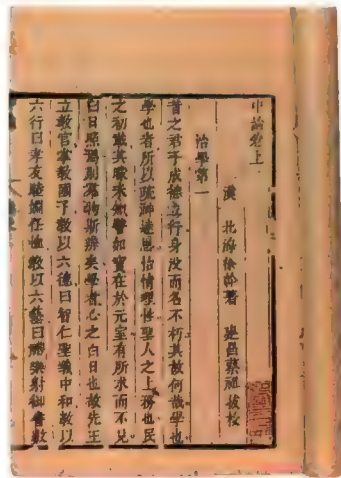 中論卷上
漢 北海徐幹著 建昌蔡祖拔校
治學第一
昔之君子成德立行身没而名不朽其故何哉學也
學也者所以疏神達思怡情理性聖人之上務也民
之初載其矇未知譬如寶在於元室有所求而不見
白日照焉則羣物斯辨矣學者心之白日也故先王
立教官掌教國子教以六德曰智仁聖義中和教以
六行曰孝友睦婣任恤教以六藝曰禮樂射御書數